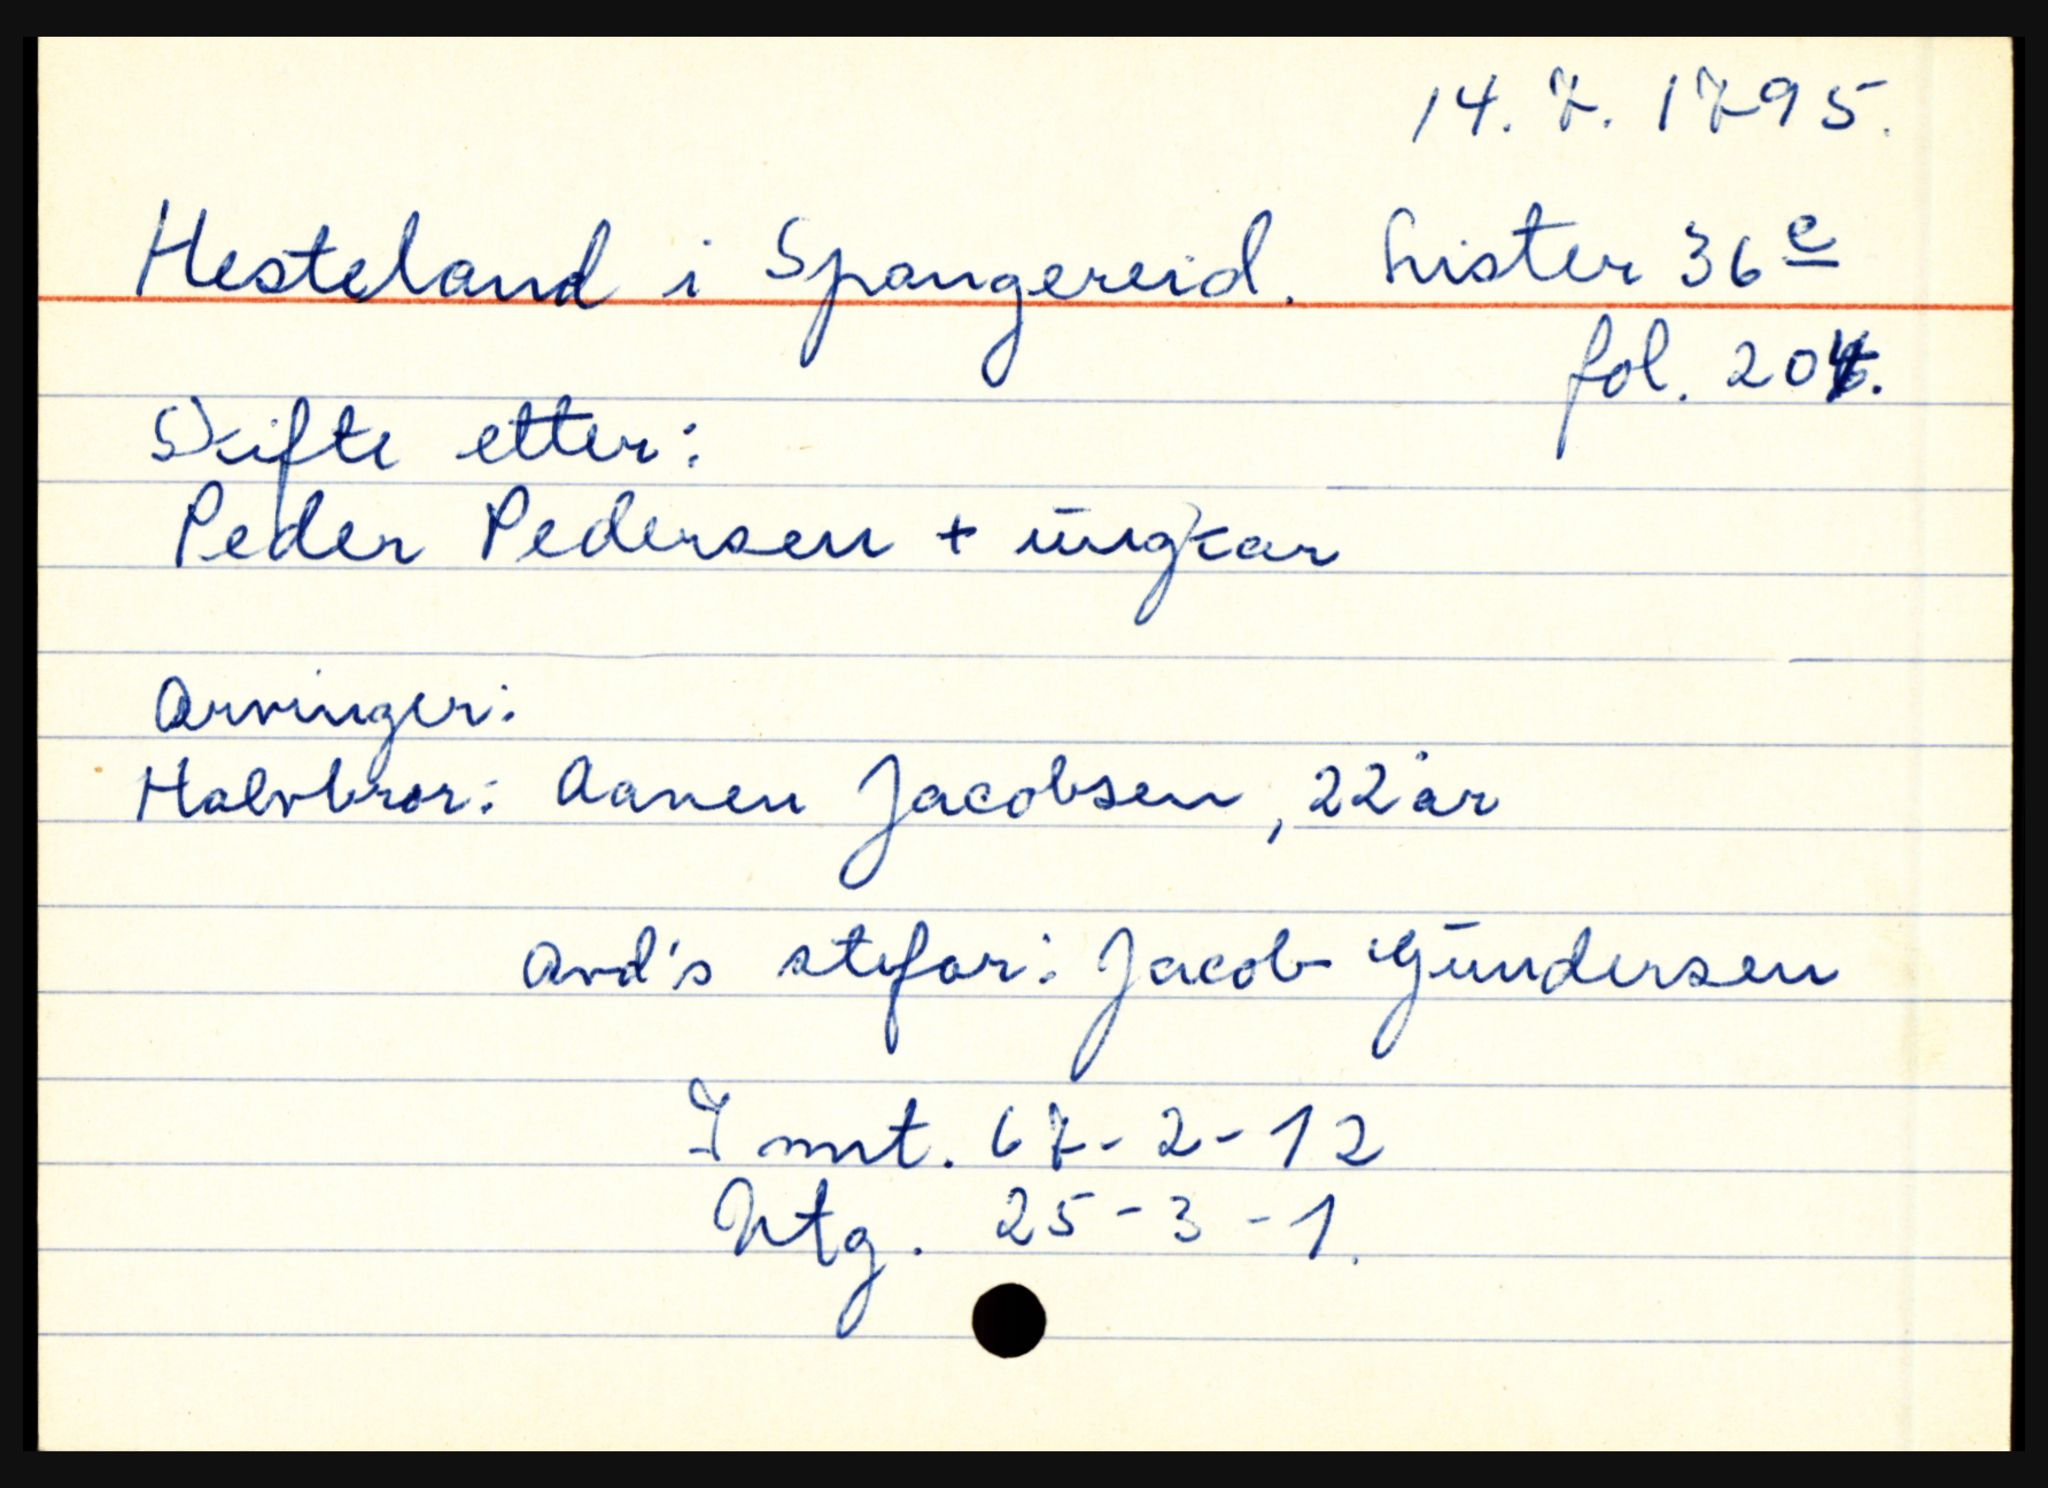 14. 7. 1795.
Hesteland i Spangereid. Lister 36 e
fol.
Skifte etter:
Peder Pedersen + ungkar
Arvinger:
Halvbror: Aanen Jacobsen, 22 år
Avd's stefar: Jacob Gundersen
I mnt. 67-2-12
Utg. 25-3-1.